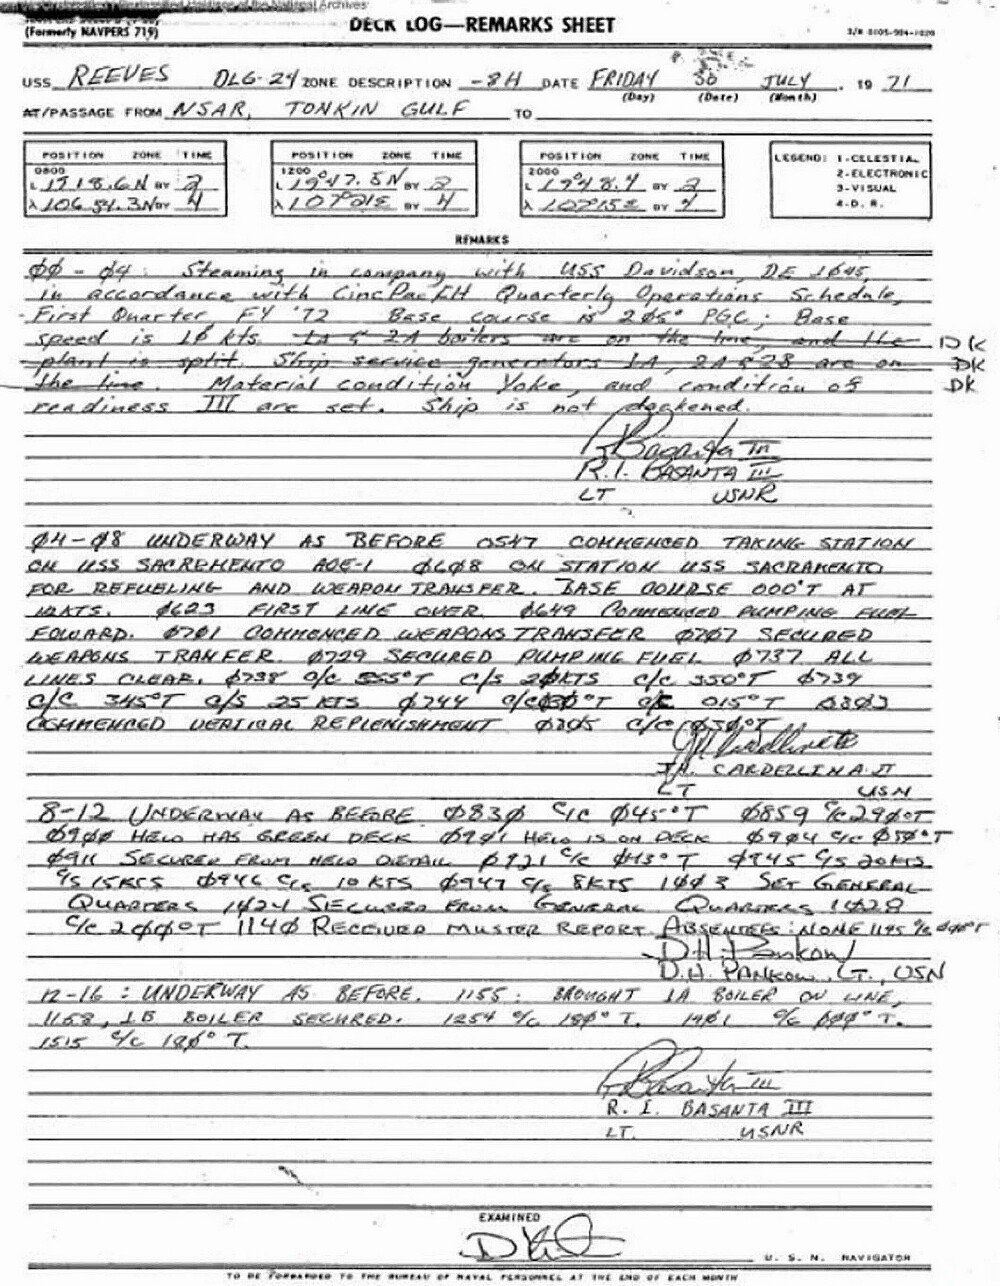 National Archives
DECK LOG—REMARKS SHEET
(Formerly NAVPERS 719)
S/N 0105-904-1020
USS REEVES DLG-24 ZONE DESCRIPTION -8H DATE FRIDAY 30 JULY, 19 71
(Day) (Date) (Month)
AT/PASSAGE FROM NSAR, TONKIN GULF TO
POSITION ZONE TIME
0800
L BY 2
λ BY 4
POSITION ZONE TIME
1200
L 19°47.5N BY 2
λ 107°21E BY 4
POSITION ZONE TIME
2000
L 19°48.4 BY 2
λ 107°15E BY 4
LEGEND: 1-CELESTIAL
2-ELECTRONIC
3-VISUAL
4-D. R.
REMARKS
ØØ - Ø4: Steaming in company with USS Davidson, DE 1045
in accordance with CincPacFlt Quarterly Operations Schedule,
First Quarter FY '72 Base course is PGC; Base
speed is kts. 1A & 2A boilers are on the line, and the DK
plant is split. Ship service generators 1A, 2A & 2B are on DK
the line. Material condition Yoke, and condition of DK
readiness III are set. Ship is not darkened.
R. I. BASANTA III
LT USNR
Ø4-Ø8 UNDERWAY AS BEFORE 0547 COMMENCED TAKING STATION
ON USS SACREMENTO AOE-1 Ø6Ø8 ON STATION USS SACRAMENTO
FOR REFUELING AND WEAPON TRANSFER. BASE COURSE 000°T AT
KTS. Ø623 FIRST LINE OVER. Ø649 COMMENCED PUMPING FUEL
FOWARD. Ø7Ø1 COMMENCED WEAPONS TRANSFER Ø7Ø7 SECURED
WEAPONS TRANFER. Ø729 SECURED PUMPING FUEL Ø737 ALL
LINES CLEAR. Ø738 C/C 355°T C/S 2ØKTS C/C 350°T Ø739
C/C 345°T C/S 25 KTS Ø744 C/C 015°T Ø8Ø3
COMMENCED VERTICAL REPLENISHMENT Ø8Ø5 C/C
J.H. CARDELLINA II
LT USN
8-12 UNDERWAY AS BEFORE Ø83Ø C/C Ø45°T Ø859 C/C 29Ø°T
Ø9ØØ HELO HAS GREEN DECK Ø9Ø1 HELO IS ON DECK Ø9Ø4 C/C Ø5Ø°T
Ø911 SECURED FROM HELO DETAIL Ø921 C/C Ø45°T Ø945 C/S 20KTS
C/S 15KTS Ø946 C/S 10 KTS Ø947 C/S 8KTS 1ØØ3 SET GENERAL
QUARTERS 1Ø24 SECURED FROM GENERAL QUARTERS 1Ø28
C/C 2ØØ°T 114Ø RECEIVED MUSTER REPORT. ABSENTEES: NONE 1145 C/C ØØØ°T
D.H. Pankow
D.H. PANKOW, LT., USN
12-16: UNDERWAY AS BEFORE. 1155: BROUGHT 1A BOILER ON LINE,
1158, 1B BOILER SECURED. 1254 C/C 18Ø°T. 14Ø1 C/C ØØØ°T.
1515 C/C 18Ø°T.
R. I. BASANTA III
LT. USNR
EXAMINED
U. S. N. NAVIGATOR
TO BE FORWARDED TO THE BUREAU OF NAVAL PERSONNEL AT THE END OF EACH MONTH